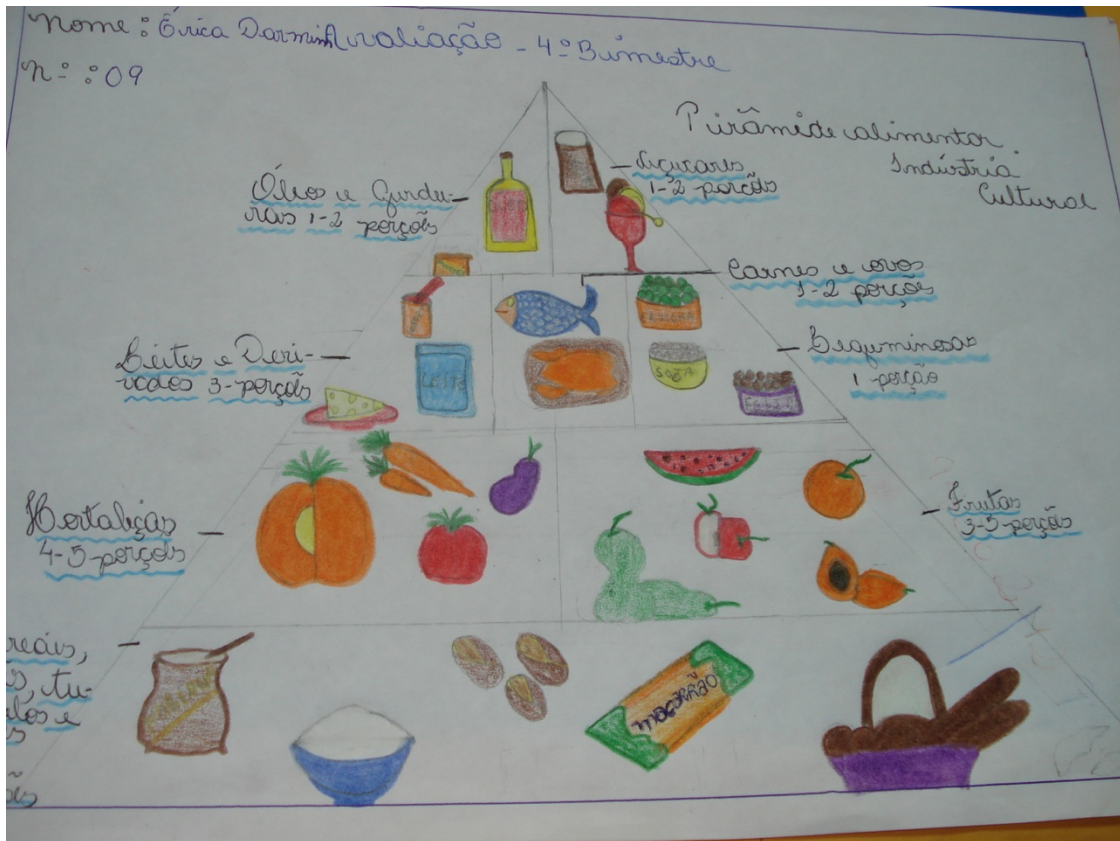 Nome: Érica Darmim Avaliação - 4º Bimestre
Nº: 09
Pirâmide alimentar.
Indústria
Cultural
Óleos e Gordu-
ras 1-2 porções
Açucares
1-2 porções
Carnes e ovos
1-2 porções
Leites e Deri-
vados 3-porções
LEITE
SOJA
Leguminosas
1 porção
Hortaliças
4-5-porções
Frutas
3-5-porções
reais,
MACARRÃO